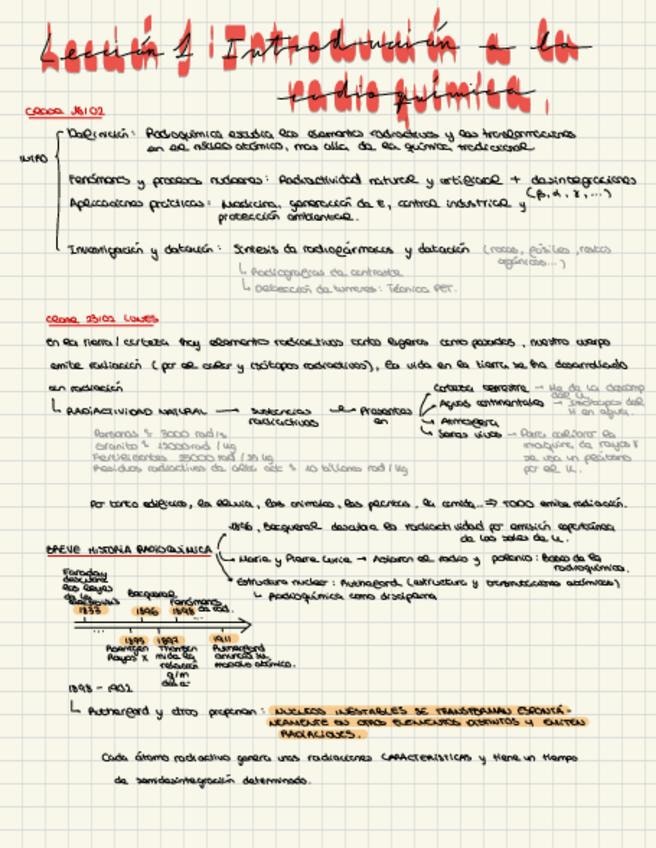 Lección 1: Introducción a la
radioquímica.
CLASE 18/02
INTRO
Definición: Radioquímica estudia los elementos radioactivos y las transformaciones
en el núcleo atómico, mas alla de la química tradicional
Fenómenos y procesos nucleares: Radiactividad natural y artificial + desintegraciones
(β, α, γ, ...)
Aplicaciones prácticas: Medicina, generación de E, control industrial y
protección ambiental.
Investigación y datación: Síntesis de radiofármacos y datación (rocas, fósiles, restos
orgánicos...)
↳ Radiografias de contraste
↳ Detección de tumores: Técnica PET.
CLASE 23/02 LUNES
En la tierra / corteza hay elementos radioactivos tanto ligeros como pesados, nuestro cuerpo
emite radiación (por el calor y isótopos radioactivos), la vida en la tierra se ha desarrollado
en radiación
↳ RADIACTIVIDAD NATURAL → sustancias radioactivas → Presentes en
Corteza terrestre → He de la descomp
del U.
Aguas continentales → Isotopos del
H en agua.
Atmósfera
Seres vivos → Para calibrar la
maquina de rayos X
se usa un plátano
por el K.
Personas 3000 rad/s
Granito 12000 rad/kg
Fertilizantes
Residuos radioactivos de alta act 10 billones rad/kg
Por tanto edificios, la lluvia, los animales, las plantas, la comida... ⇒ TODO emite radiación.
BREVE HISTORIA RADIOQUÍMICA
1896, Becquerel descubre la radioactividad por emisión espontánea
de las sales de U.
Marie y Pierre Curie → Aislaron el radio y polonio: Base de la
radioquímica.
Estructura nuclear: Rutherford (estructura y transmutaciones atómicas)
↳ Radioquímica como disciplina
Faraday
descubre
las leyes
de la
Becquerel
Fenómenos
de rad.
1833 1896 1898
1895 1897 1911
Roentgen
Rayos X
Thomson
mide la
relación
q/m
del e⁻
Rutherford
anuncia su
modelo atómico.
1898 - 1902
↳ Rutherford y otros proponen: NUCLEOS INESTABLES SE TRANSFORMAN ESPONTÁ-
NEAMENTE EN OTROS ELEMENTOS DISTINTOS Y EMITEN
RADIACIONES.
Cada átomo radiactivo genera unas radiaciones CARACTERÍSTICAS y tiene un tiempo
de semidesintegración determinado.